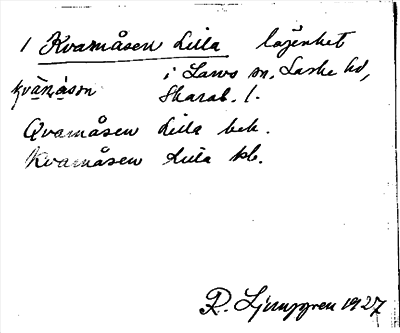 1 Kvarnåsen Lilla lägenhet
i Larvs sn, Laske hd,
kvä̀ṇåsɷn Skarab. l.
Qvarnåsen Lilla bek.
Kvarnåsen Lilla kb.
R. Ljunggren 1927